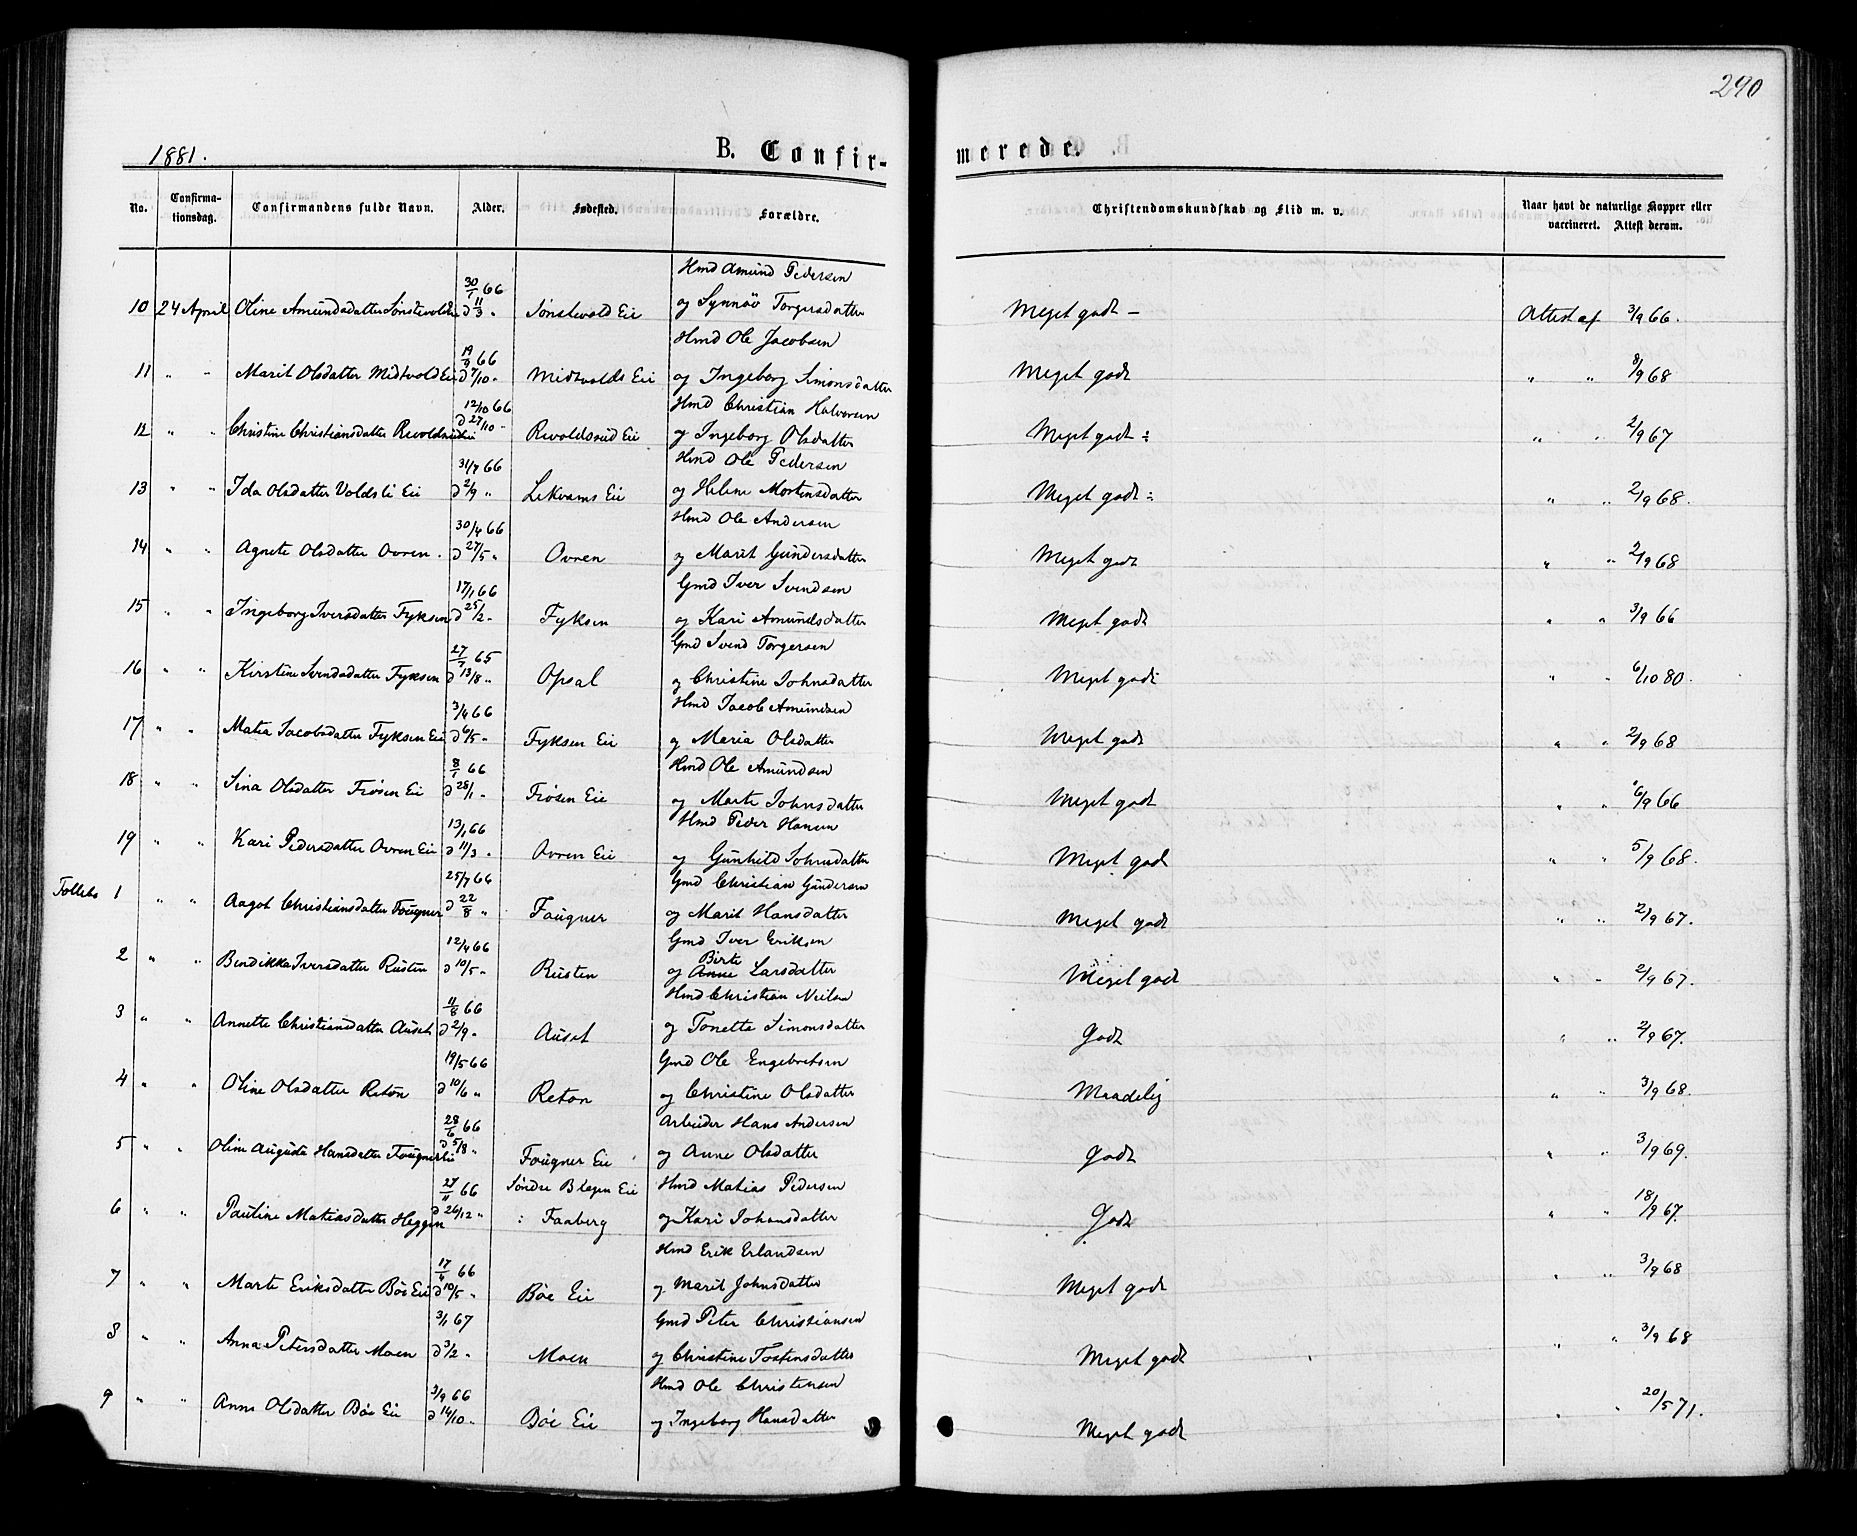 290
1881.
B. Confir-
merede.
No.
Confirma-
tionsdag.
Confirmandens fulde Navn.
Alder.
Fødested.
Forældre.
Christendomskundskab og Flid m. v.
Naar havt de naturlige Kopper eller
vaccineret. Attest derom.
Hmd Amund Pedersen
30/1 66
10 24 April Oline Amundsdatter Sønstevoldeie d 11/3 " Sønstevold Eie og Synnøv Torgersdatter Meget godt - Attest af 3/9 66.
Hmd Ole Jacobsen
19/9 66
11 " " Marit Olsdatter Midtvold Eie d 7/10 " Midtvolds Eie og Ingeborg Simonsdatter Meget godt " " 8/9 68
12/10 66 Hmd Christian Halvorsen
12 " " Christine Christiansdatter d 27/10 " Eie og Ingeborg Olsdatter Meget godt ÷ " " 2/9 67
31/7 66 Hmd Ole Pedersen
13 " " Ida Olsdatter Voldsli Eie d 2/9 " Lekvams Eie og Helene Mortensdatter Meget godt ÷ " " 2/9 68.
30/4 66 Hmd Ole Andersen
14 " " Agnete Olsdatter Ovren. d 27/5 " Ovren og Marit Gundersdatter Meget godt " " 2/9 68
17/1 66 Gmd Iver Svendsen
15 " " Ingeborg Iversdatter Fyksen d 25/2 " Fyksen og Kari Amundsdatter Meget godt " " 3/9 66
27/7 65 Gmd Svend Torgersen
16 " " Kirstine Svendsdatter Fyksen d 13/8 " Opsal og Christine Johnsdatter Meget godt " " 6/10 80.
3/4 66 Hmd Jacob Amundsen
17 " " Matea Jacobsdatter Fyksen Eie d 6/5 " Fyksen Eie og Maria Olsdatter Meget godt " " 2/9 68
8/1 66 Hmd Ole Amundsen
18 " " Sina Olsdatter Frøsen Eie d 28/1 " Frøsen Eie og Marte Johnsdatter Meget godt " " 6/9 66
13/1 66 Hmd Peder Hansen
19 " " Kari Pedersdatter Ovren Eie d 11/3 " Ovren Eie og Gunhild Johnsdatter Meget godt " " 5/9 68.
25/7 66 Gmd Christian Gundersen
Follebo 1 " " Aagot Christiansdatter Fougner d 22/8 " Fougner og Marit Hansdatter Meget godt " " 2/9 67.
12/4 66 Gmd Iver Eriksen
Birte
2 " " Bendikka Iversdatter Rusten d 10/5 " Rusten og Anne Larsdatter Meget godt " " 2/9 67.
11/8 66 Hmd Christian Nielsen
3 " " Annette Christiansdatter Auset d 2/9 " Auset og Tonette Simonsdatter Godt " " 2/9 67.
19/5 66 Gmd Ole Engebretsen
4 " " Oline Olsdatter Reton d 10/6 " Reton og Christine Olsdatter Maadelig " " 3/9 68.
28/6 66 Arbeider Hans Andersen
5 " " Oline Auguste Hansdatter Fougner Eie d 5/8 " Fougner Eie og Anne Olsdatter Godt " " 3/9 69.
27/11 66 Søndre Blegen Eie Hmd Matias Pedersen
6 " " Pauline Matiasdatter Heggen d 26/12 " : Faaberg og Kari Johansdatter Godt " " 18/9 67.
17/4 66 Hmd Erik Erlandsen
7 " " Marte Eriksdatter Bøe Eie d 10/5 " Bøe Eie og Marit Johnsdatter Meget godt " " 3/9 68
3/1 67 Gmd Peter Christiansen
8 " " Anna Petersdatter Moen d 3/2 " Moen og Christine Tostensdatter Meget godt " " 3/9 68
3/9 66 Hmd Ole Christensen
9 " " Anne Olsdatter Bøe Eie d 14/10 " Bøe Eie og Ingeborg Hansdatter Meget godt " " 20/5 71.